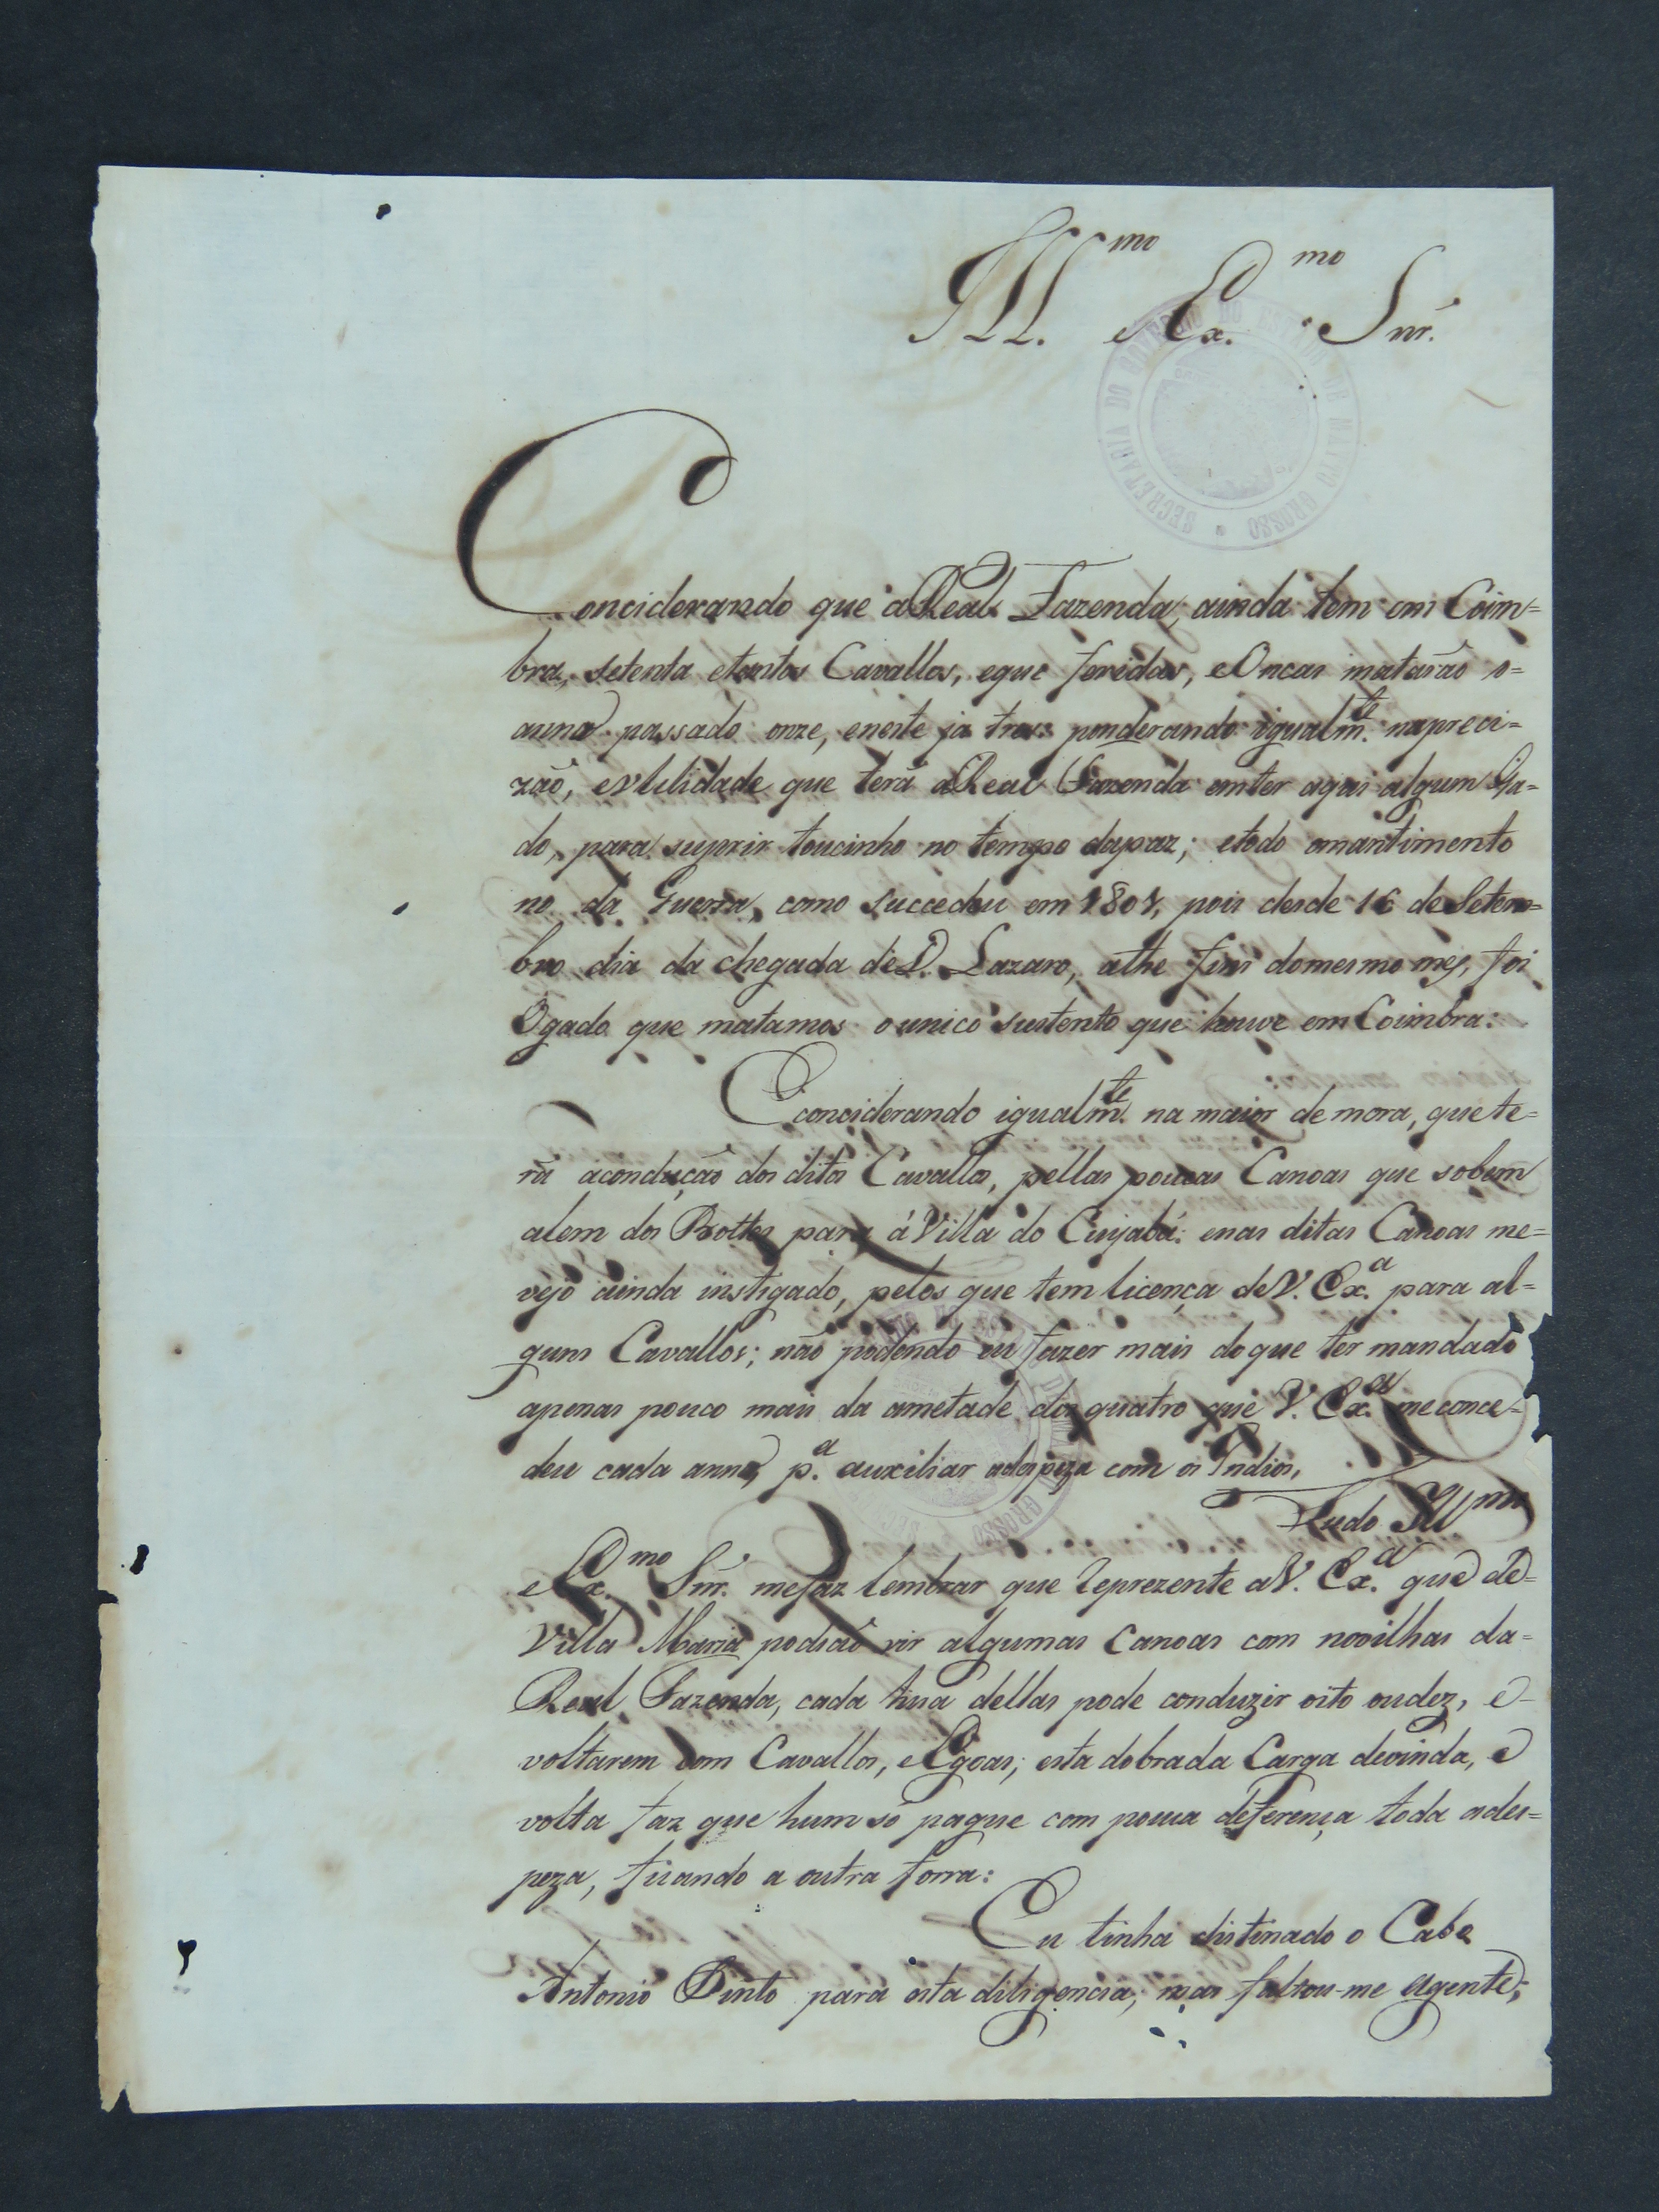 Ill.mo e Ex.mo Snr.
SECRETARIA DO GOVERNO DO ESTADO DE MATTO GROSSO
Conciderando que a Real Fazenda, ainda tem em Coim=
bra, setenta etantos Cavallos, eque feridas, eOncas matarão o=
anno passado onze, eneste ja tres: ponderando igualm.te napreci=
zão, evtilidade que terá aReal Fazenda emter aqui algum Ga=
do, para suprir toucinho no tempo dapaz; etodo omantimento
no da Guerra, como succedeu em 1801, pois desde 16 de Setem=
bro dia da chegada deD. Lazaro, athe fins domesmo mes, foi
Ogado que matamos o unico sustento que houve em Coimbra:
Conciderando igualm.te na maior demora, quete=
rá acondução dos ditos Cavallos, pellas poucas Canoas que sobem
alem dos Bottes para á Villa do Cuyabá: enas ditas Canoas me=
vejo ainda instigado, pelos que tem licença deV. Ex.a para al=
guns Cavallos; não podendo eu fazer mais doque ter mandado
apenas pouco mais da ametade dos quatro que V. Ex.a meconce=
deu cada anno, p.a auxiliar adespeza com os Indios,
Tudo Ill.mo
e Ex.mo Snr. mefaz lembrar que Reprezente aV. Ex.a que de=
Villa Maria podião vir algumas Canoas com novilhas da=
Real Fazenda, cada hua dellas pode conduzir oito oudez, e=
voltarem com Cavallos, eEgoas; esta dobrada Carga devinda, e
volta faz que hum só pague com pouca deferença toda ades=
peza, ficando a outra forra:
Eu tinha distinado o Cabo
Antonio Pinto para esta diligencia; mas faltou-me agente;